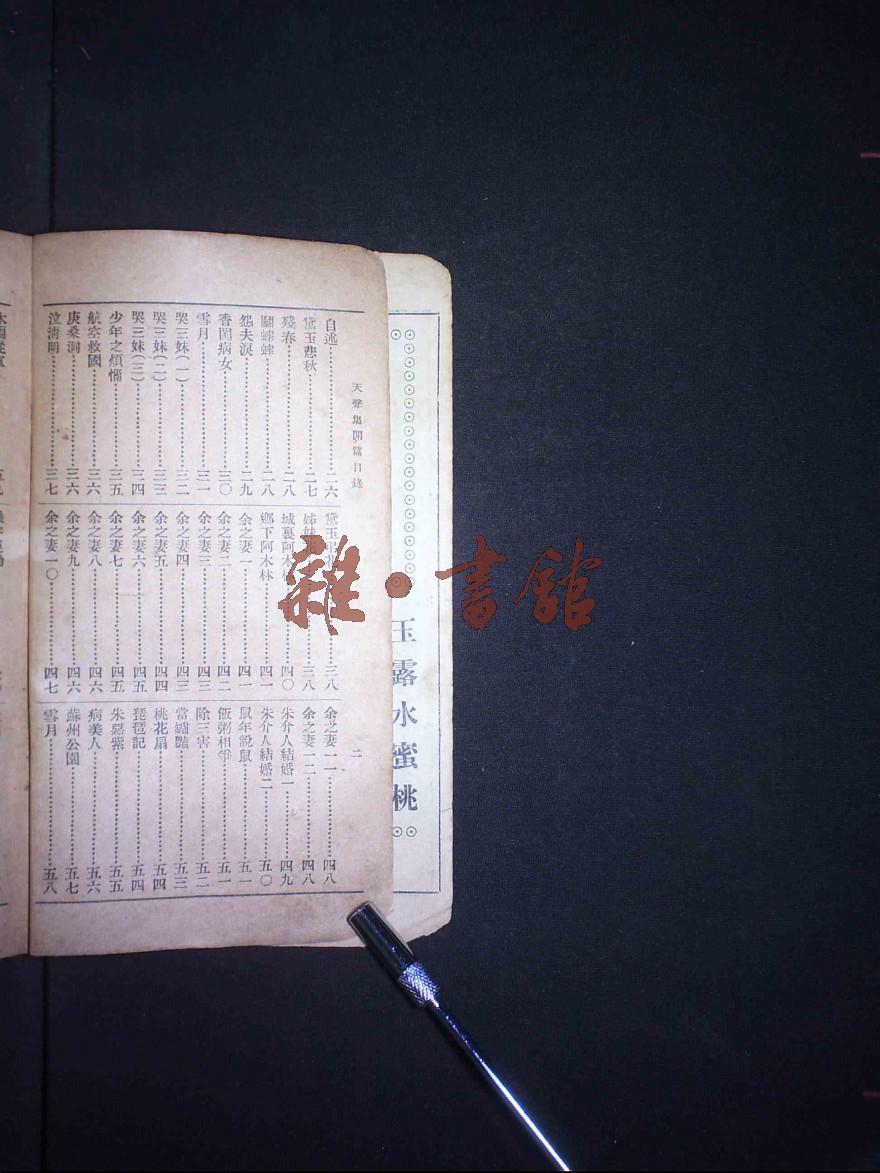 天聲集開篇目錄
二
自述……二六
黛玉悲秋……二七
殘春……二八
鬭蟀蟀……二八
怨夫淚……二九
香閨病女……三〇
雪月……三一
哭三妹(一)……三二
哭三妹(二)……三三
哭三妹(三)……三四
少年之煩惱……三五
航空救國……三六
庚桑洞……三六
泣淸明……三七
黛玉……三八
姊妹……三八
城裏阿木……四〇
鄉下阿木林……四一
余之妻一……四一
余之妻二……四二
余之妻三……四三
余之妻四……四三
余之妻五……四四
余之妻六……四五
余之妻七……四五
余之妻八……四六
余之妻九……四六
余之妻一〇……四七
余之妻一一……四八
余之妻一二……四八
朱介人結婚一……四九
朱介人結婚二……五〇
鼠年說鼠……五一
飯粥相爭……五一
除三害……五二
當罏豔……五三
桃花扇……五四
琵琶記……五四
朱慕紫……五五
病美人……五六
蘇州公園……五七
雪月……五八
玉露水蜜桃
雜·書館